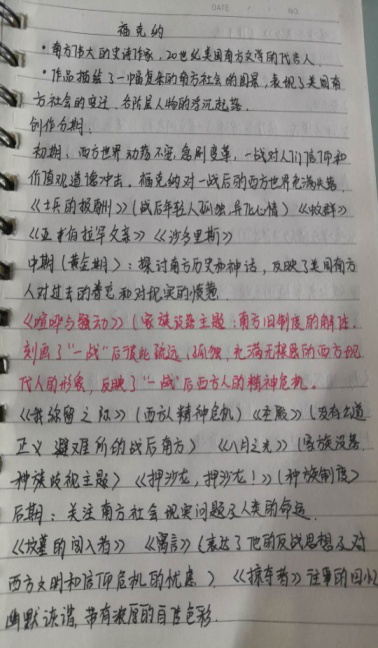 DATE NO.
福克纳
·南方伟大的史诗作家，20世纪美国南方文学的代表人
·作品描绘了一幅复杂的南方社会的图景，表现了美国南
方社会的变迁，各阶层人物的浮沉起落
创作分期：
初期：西方世界动荡不安，急剧变革，一战对人们信仰和
价值观道德冲击。福克纳对一战后的西方世界充满失落
《士兵的报酬》（战后年轻人孤独 心情）《蚊群》
《亚 伯拉罕父亲》《沙多里斯》
中期（黄金期）：探讨南方历史和神话，反映了美国南方
人对过去的眷恋和对现实的愤懑
《喧哗与骚动》（家族没落主题：南方旧制度的解体，
刻画了“一战”后彼此疏远，孤独，充满无根感的西方现
代人的形象，反映了“一战”后西方人的精神危机。
《我弥留之际》（西方人精神危机）《圣殿》（没有公道
正义 避难所的战后南方）《八月之光》（家族没落
种族歧视主题）《押沙龙，押沙龙！》（种族制度）
后期：关注南方社会现实问题及人类的命运
《坟墓的闯入者》《寓言》（表达了他的反战思想及对
西方文明和信仰危机的忧患）《掠夺者》往事的回忆
幽默诙谐，带有浓厚的自传色彩.